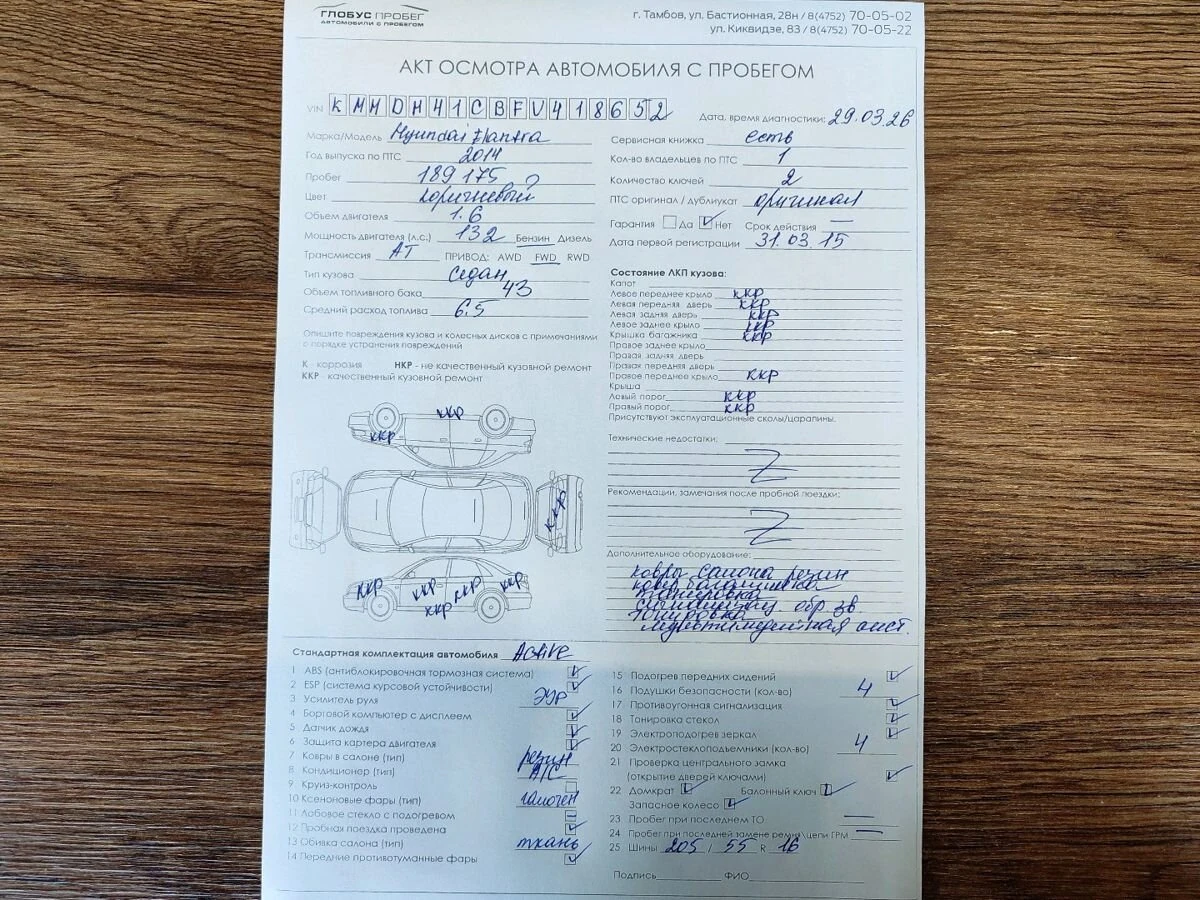 ГЛОБУС ПРОБЕГ
АВТОМОБИЛИ С ПРОБЕГОМ
г. Тамбов, ул. Бастионная, 28н / 8(4752) 70-05-02
ул. Киквидзе, 83 / 8(4752) 70-05-22
АКТ ОСМОТРА АВТОМОБИЛЯ С ПРОБЕГОМ
VIN KMHDH41CBFU418652
Дата, время диагностики: 29.03.26
Марка/Модель Hyundai Elantra
Год выпуска по ПТС 2014
Пробег 189 175
Цвет коричневый
Объем двигателя 1.6
Мощность двигателя (л.с.) 132 Бензин Дизель
Трансмиссия АТ ПРИВОД: AWD FWD RWD
Тип кузова седан
Объем топливного бака 43
Средний расход топлива 6.5
Сервисная книжка есть
Кол-во владельцев по ПТС 1
Количество ключей 2
ПТС оригинал / дубликат оригинал
Гарантия Да Нет Срок действия —
Дата первой регистрации 31.03.15
Опишите повреждения кузова и колесных дисков с примечаниями
о порядке устранения повреждений
К коррозия НКР - не качественный кузовной ремонт
ККР качественный кузовной ремонт
ккр
ккр
ккр
ккр ккр ккр ккр
ккр
Состояние ЛКП кузова:
Капот
Левое переднее крыло ккр
Левая передняя дверь ккр
Левая задняя дверь ккр
Левое заднее крыло ккр
Крышка багажника ккр
Правое заднее крыло
Правая задняя дверь
Правая передняя дверь
Правое переднее крыло ккр
Крыша
Левый порог ккр
Правый порог ккр
Присутствуют эксплуатационные сколы/царапины.
Технические недостатки:
Рекомендации, замечания после пробной поездки:
Дополнительное оборудование:
ковры салона резин
ковер багажника
обр. зв.
тонировка
мультимедийная сист.
Стандартная комплектация автомобиля Active
1 ABS (антиблокировочная тормозная система)
2 ESP (система курсовой устойчивости)
3 Усилитель руля ЭУР
4 Бортовой компьютер с дисплеем
5 Датчик дождя
6 Защита картера двигателя
7 Ковры в салоне (тип) резин
8 Кондиционер (тип) A/C
9 Круиз-контроль
10 Ксеноновые фары (тип) галоген
11 Лобовое стекло с подогревом
12 Пробная поездка проведена
13 Обивка салона (тип) ткань
14 Передние противотуманные фары
15 Подогрев передних сидений
16 Подушки безопасности (кол-во) 4
17 Противоугонная сигнализация
18 Тонировка стекол
19 Электроподогрев зеркал
20 Электростеклоподъемники (кол-во) 4
21 Проверка центрального замка
(открытие дверей ключами)
22 Домкрат Балонный ключ
Запасное колесо
23 Пробег при последнем ТО —
24 Пробег при последней замене ремня/цепи ГРМ —
25 Шины 205 / 55 R 16
Подпись ФИО